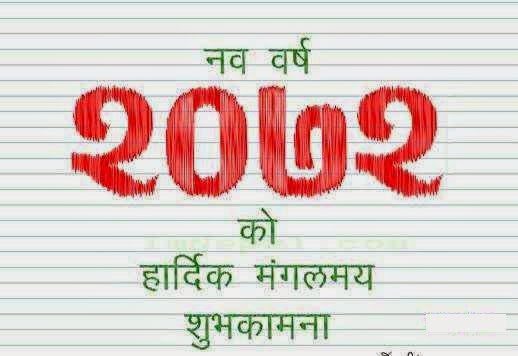 नव वर्ष
२०७२
को
हार्दिक मंगलमय
शुभकामना